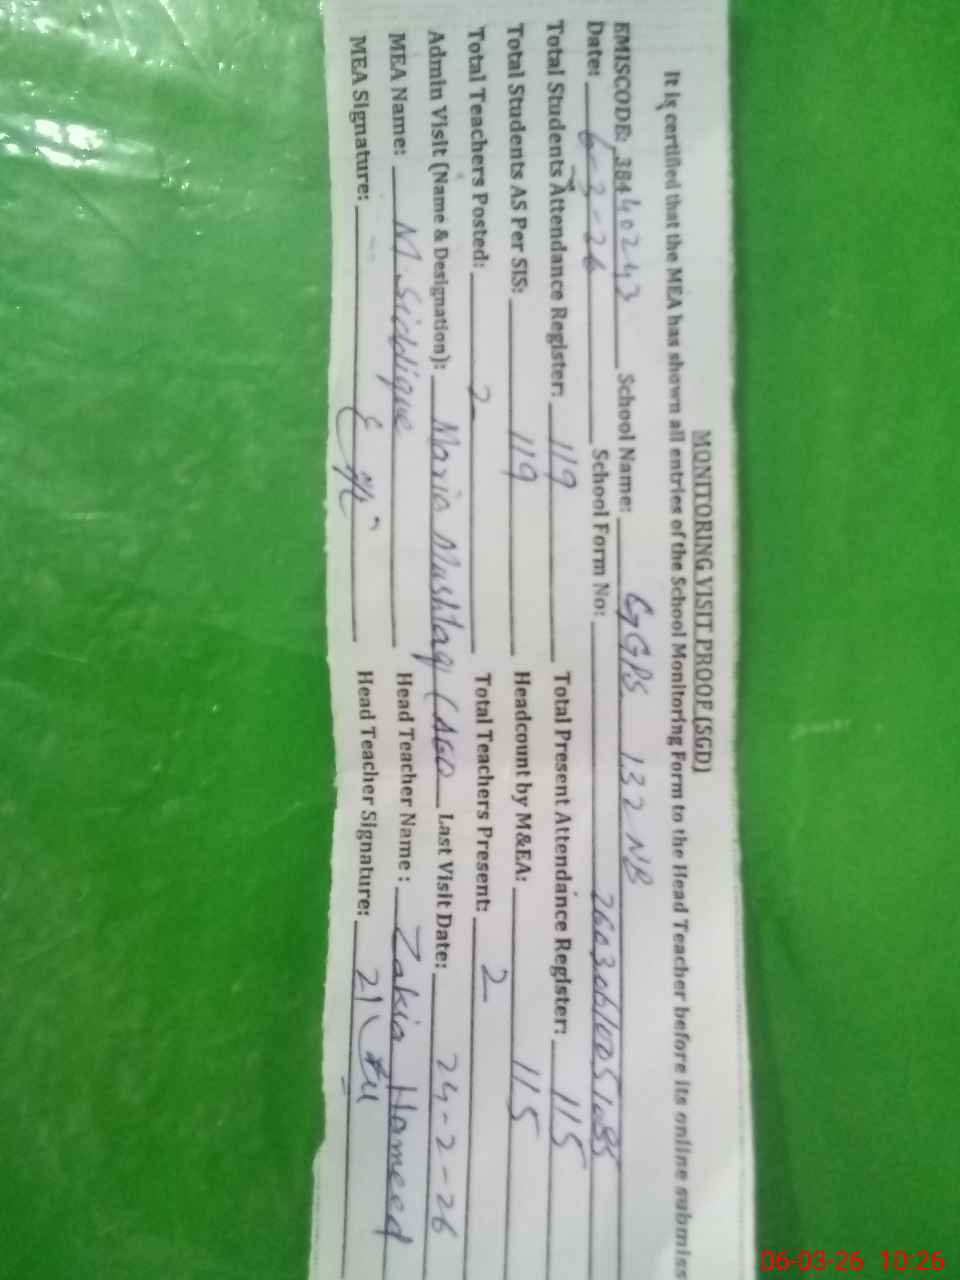 MONITORING VISIT PROOF (SGD)
It is certified that the MEA has shown all entries of the School Monitoring Form to the Head Teacher before its online submiss
EMISCODE: 38440243 School Name: GGPS 132 NB
Date: 6-3-26 School Form No:
Total Students Attendance Register: 119 Total Present Attendance Register: 115
Total Students AS Per SIS: 119 Headcount by M&EA: 115
Total Teachers Posted: 2 Total Teachers Present: 2
Admin Visit (Name & Designation): Maria Mushtaq (AEO Last Visit Date: 24-2-26
MEA Name: M. Siddique Head Teacher Name: Zakia Hameed
MEA Signature: Head Teacher Signature:
06-03-26 10:26